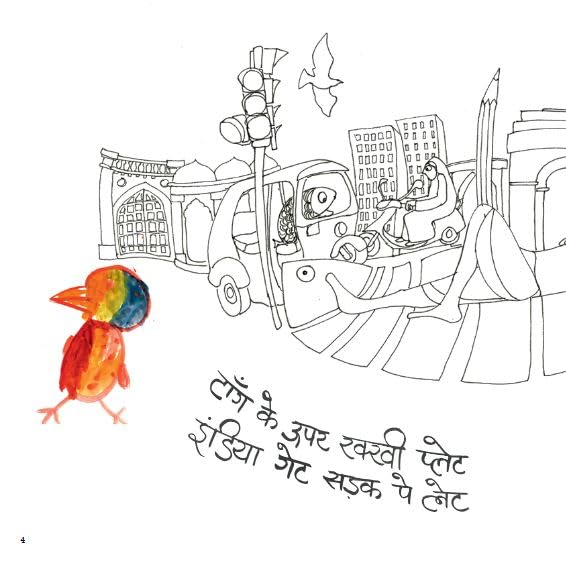 टाँग के उपर रक्खी प्लेट
इंडिया गेट सड़क पे लेट
4